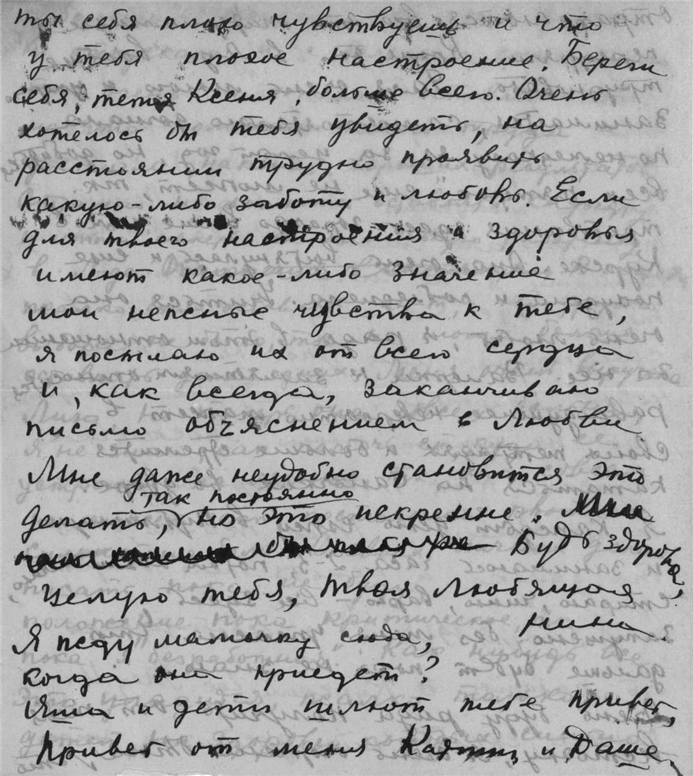 ты себя плохо чувствуешь и что
у тебя плохое настроение. Береги
себя, тетя Ксения, больше всего. Очень
хотелось бы тебя увидеть, на
расстоянии трудно проявить
какую-либо заботу и любовь. Если
для твоего настроения и здоровья
имеют какое-либо значение
мои нежные чувства к тебе,
я посылаю их от всего сердца
и, как всегда, заканчиваю
письмо объяснением в любви.
Мне даже неудобно становится это
так постоянно
делать, но это искренне.
Будь здорова,
целую тебя, твоя любящая
Нина.
Я жду мамочку сюда,
когда она приедет?
Яша и дети шлют тебе привет,
Привет от меня и Даше.